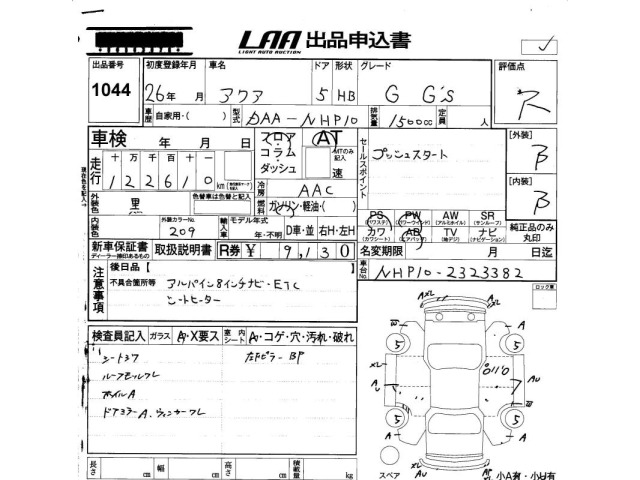 LAA 出品申込書
LIGHT AUTO AUCTION
出品番号 初度登録年月 車名 ドア 形状 グレード 評価点
1044 26年 月 アクア 5 HB G G's
車歴 自家用・( ) 型式 DAA-NHP10 排気量 1500cc 定員 人
車検 年 月 日 フロア コラム ダッシュ AT MTのみ記入 速 セールスポイント プッシュスタート 【外装】 B
走行 十 万 千 百 十 0 km
1 2 2 6 1 0
冷房 AAC 【内装】 B
外装色 黒 色替車は色替と記入 燃料 ガソリン・軽油・( )
内装色 外装カラーNo. 209 輸入車 モデル年式 年・不明 D車・並 右H・左H
PS (パワステ) PW (パワーウインド) AW (アルミホイル) SR (サンルーフ) 純正品のみ丸印
カワ (カワシート) AB (エアバッグ) TV (地デジ) ナビ (ナビゲーション)
新車保証書 ディーラー捺印あるもの 取扱説明書 R券 ¥ 9,130 名変期限 月 日迄
車台No. NHP10-2323382
注意事項 後日品【 】
不具合箇所等 アルパイン8インチナビ・ETC
シートヒーター
ロック車
検査員記入 ガラス A・X要ス 室内シート A・コゲ・穴・汚れ・破れ
シートスワ 左Fピラー BP
ルーフモールワレ
ホイルA
ドアミラーA、ウィンカーワレ
長さ cm 幅 cm 高さ cm 積載量 kg
スペア 小A有・小U有